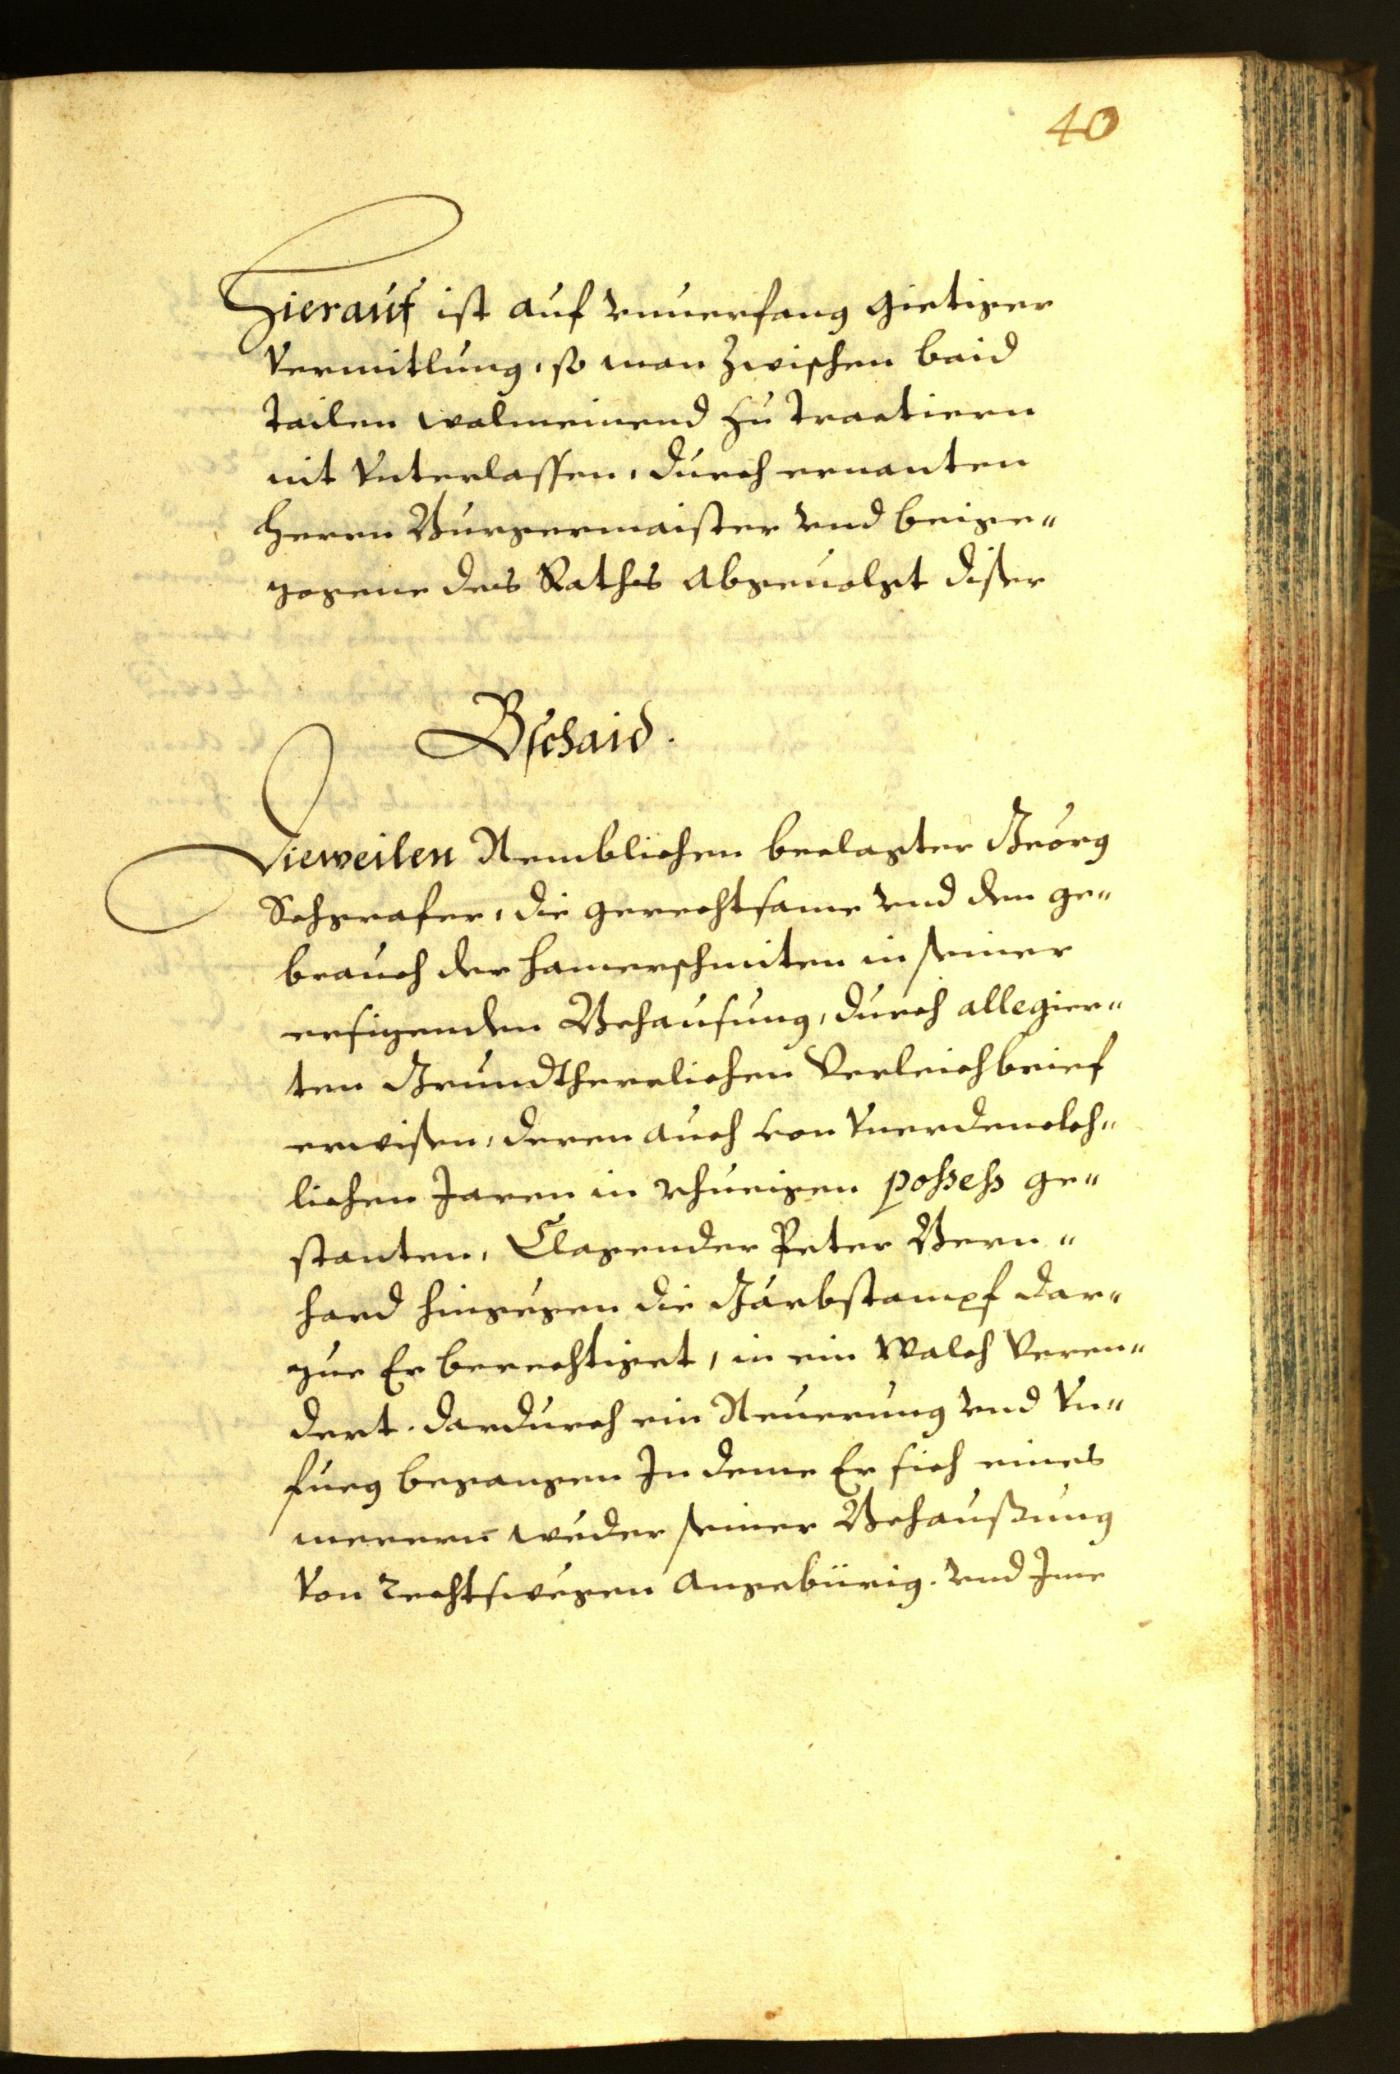 40
Hierauf ist auf vnuerfang gietiger
Vermitlung, so man zwischen baid
Tailen wolmeinend zu Tractiern
nit Vnterlassen, durch ernanten
Herrn Burgermaister vnd beige¬
zogene des Raths Abgeuolgt diser
Bschaid.
Dieweilen Nemblichen beclagter Georg
Schgrafer, die gerechtsame vnd den ge¬
brauch der hamerschmiten in seiner
ersizenden Behausung, durch allegier¬
ten Grundtherrlichen Verleichbrief
erwisen, deren auch von Vnerdenckh¬
lichen Jaren in rhueigen possess ge¬
standen, Clagender Peter Bern¬
hard hingegen die Gärbstampf dar¬
zue Er berechtiget, in ein Walch Veren¬
dert. dardurch ein Neuerung vnd Vn¬
fueg begangen In deme Er sich eines
merern weder seiner Behaußung
Von rechtswegen Angebürig. vnd Jme